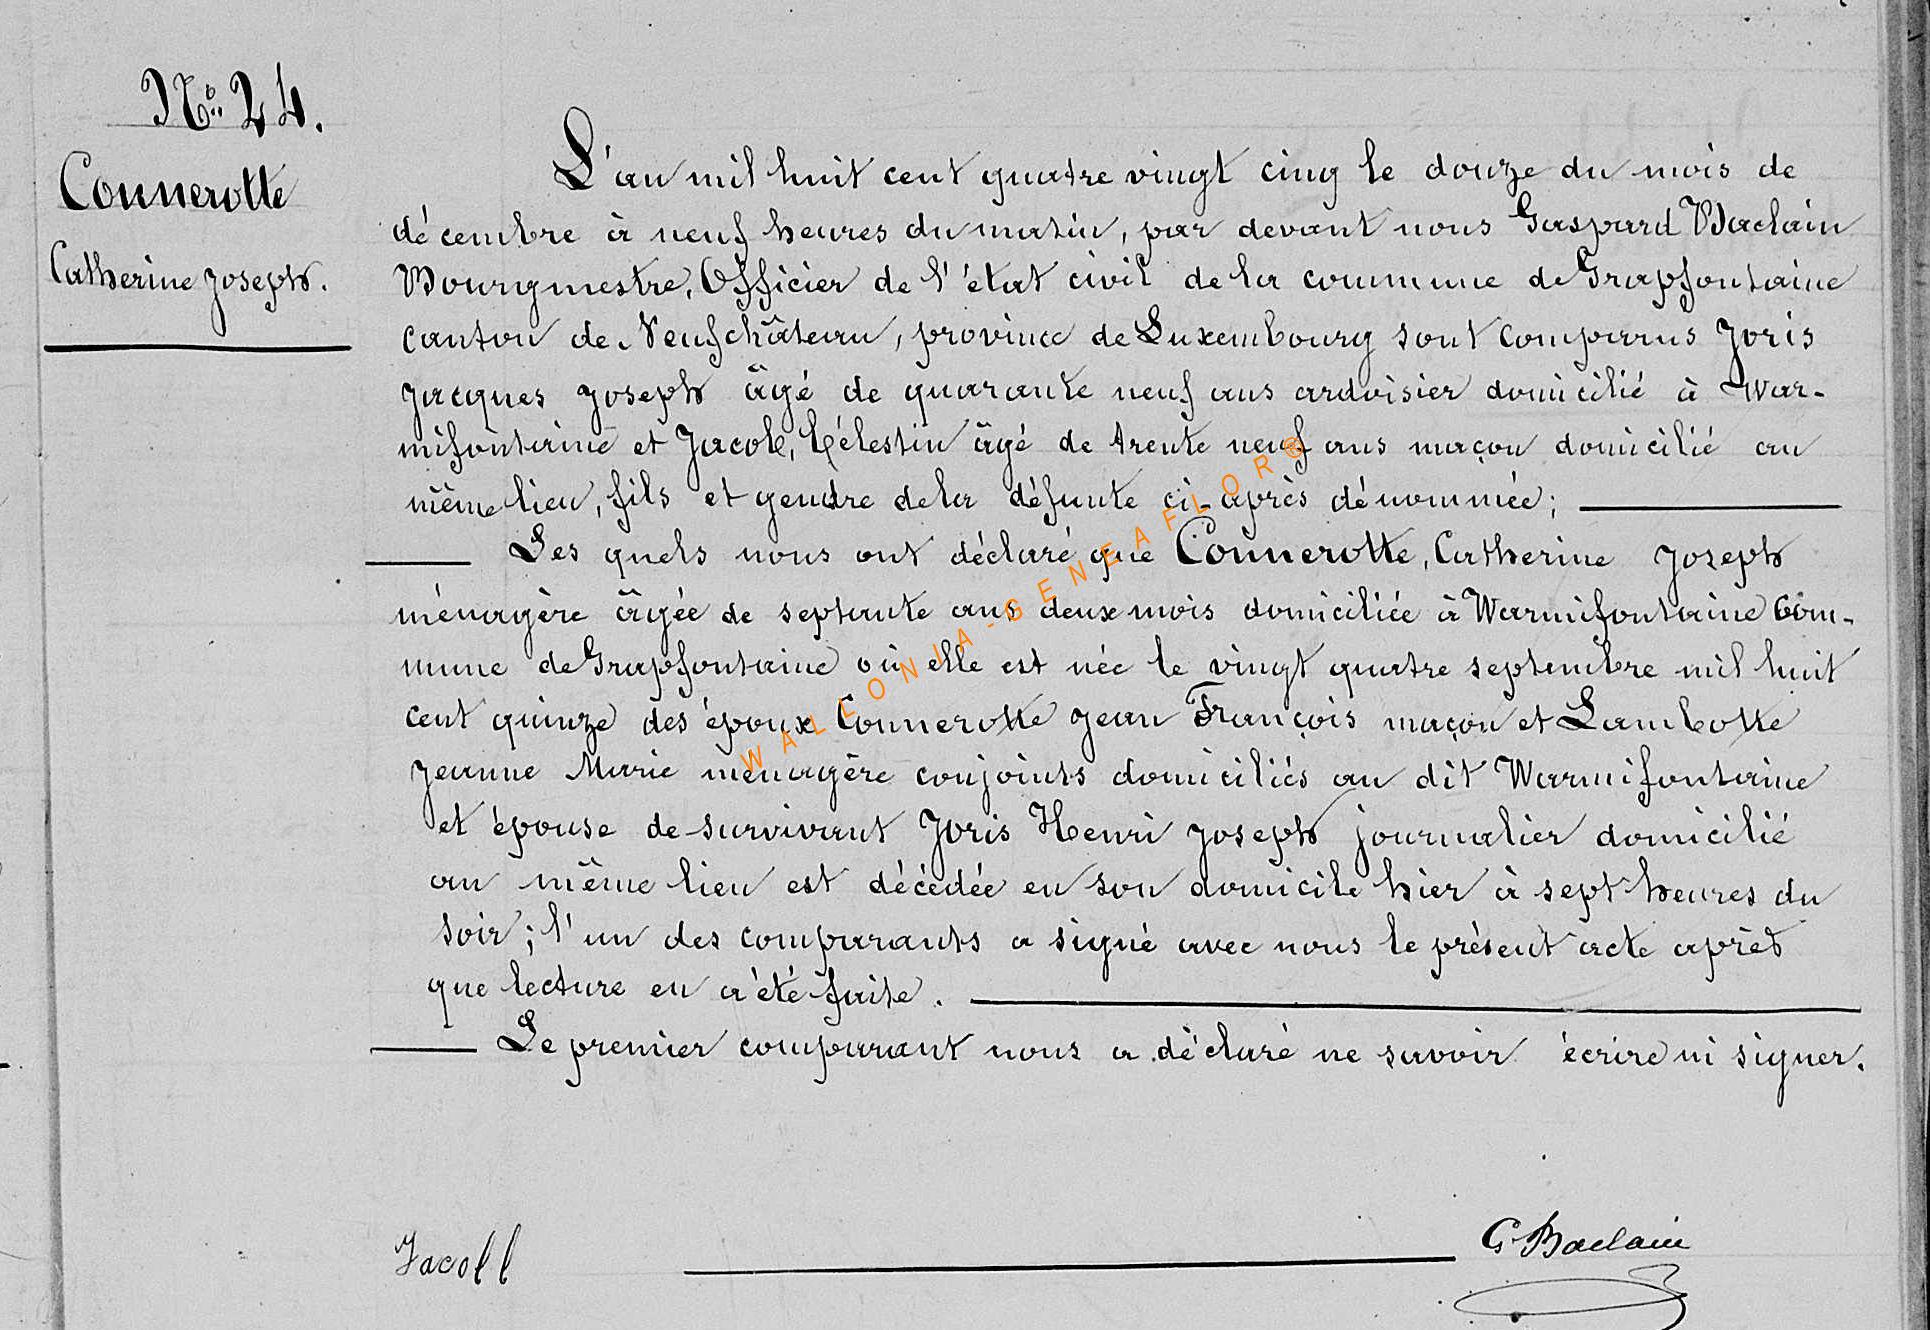 No 24.
Connerotte
Catherine Joseph.
L'an mil huit cent quatre vingt cinq le douze du mois de
décembre à neuf heures du matin, par devant nous Gaspard Baclain
Bourgmestre, Officier de l'état civil de la commune de Grapfontaine
canton de Neufchâteau, province de Luxembourg sont comparus Joris
Jacques Joseph âgé de quarante neuf ans ardoisier domicilié à War-
mifontaine et Jacob, Célestin âgé de trente neuf ans maçon domicilié au
même lieu, fils et gendre de la défunte ci-après dénommée;
Les quels nous ont déclaré que Connerotte, Catherine Joseph
ménagère âgée de septante ans deux mois domiciliée à Warmifontaine Com-
mune de Grapfontaine où elle est née le vingt quatre septembre mil huit
cent quinze des époux Connerotte Jean François maçon et Lambotte
Jeanne Marie ménagère conjoints domiciliés au dit Warmifontaine
et épouse de survivant Joris Henri Joseph journalier domicilié
au même lieu est décédée en son domicile hier à sept heures du
soir; l'un des comparants a signé avec nous le présent acte après
que lecture en a été faite.
Le premier comparant nous a déclaré ne savoir écrire ni signer.
G Baclain
WALLONIA-GENEAFLOR©